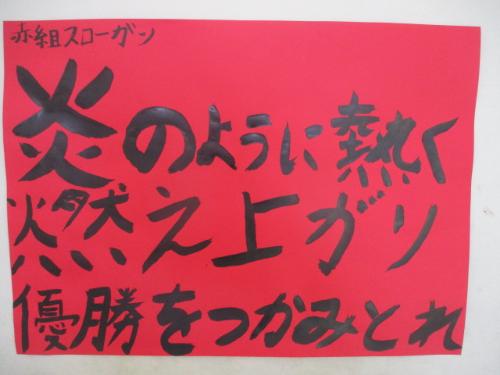 赤組スローガン
炎のように熱く
燃え上がり
優勝をつかみとれ